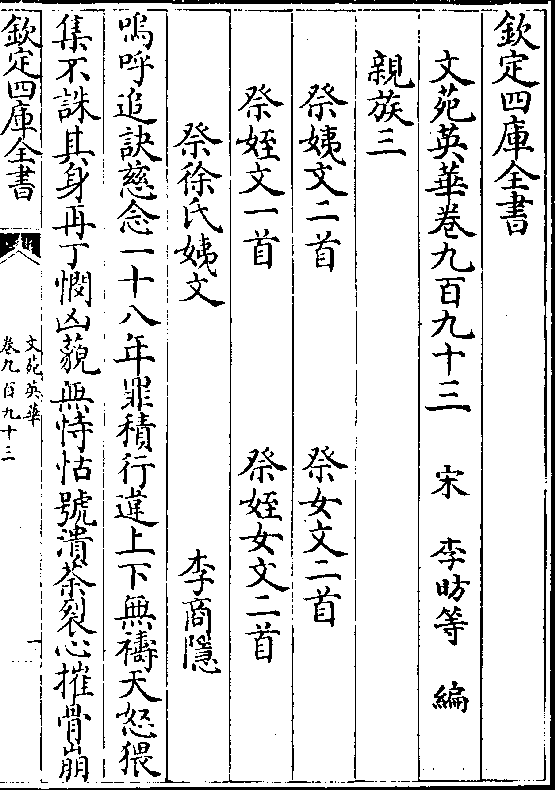 欽定四庫全書
文苑英華卷九百九十三 宋 李昉等 編
親族三
祭姨文二首 祭女文二首
祭姪文一首 祭姪女文二首
祭徐氏姨文 李商隱
嗚呼追訣慈念一十八年罪積行違上下無禱天怒猥
集不誅其身再丁憫凶藐無恃怙號潰荼裂心摧骨崩
欽定四庫全書
文苑英華
卷九百九十三
一